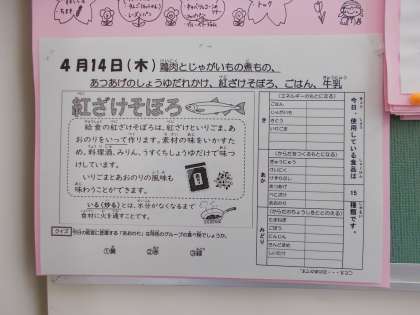 4月14日(木) 鶏肉とじゃがいもの煮もの、
あつあげのしょうゆだれかけ、紅ざけそぼろ、ごはん、牛乳
紅ざけそぼろ
給食の紅ざけそぼろは、紅ざけといりごま、あ
おのりをいって作ります。素材の味をいかすた
め、料理酒、みりん、うすくちしょうゆだけで味つ
けしています。
いりごまとあおのりの風味も
味わうことができます。
いる(炒る)とは、水分がなくなるまで
食材に火を通すことです。
クイズ
①黄 ②赤 ③緑
今日、使用している食品は、15種類です。
き
(エネルギーのもとになる)
ごはん
じゃがいも
さとう
いりごま
あか
(からだをつくるもとになる)
ぎゅうにゅう
けいにく
あつあげ
べにざけ
あおのり
みどり
(からだのちょうしをととのえる)
たまねぎ
ごぼう
にんじん
さんどまめ
しいたけ